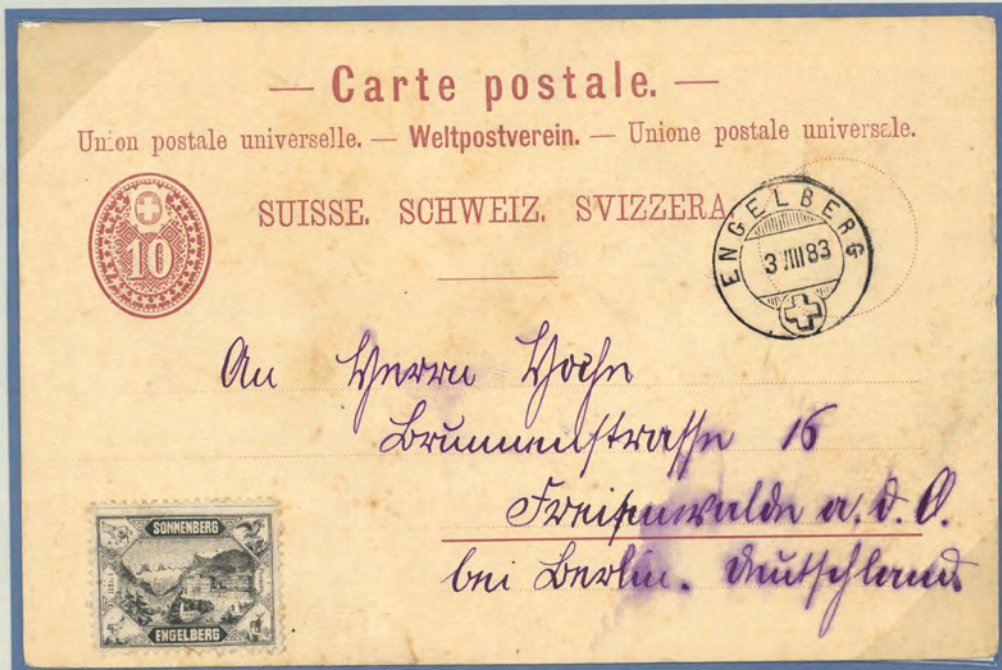 — Carte postale. —
Union postale universelle. — Weltpostverein. — Unione postale universale.
10
SUISSE. SCHWEIZ. SVIZZERA.
ENGELBERG
3 VIII 83
An Herrn
Brunnenstrasse 16
Freienwalde a. d. O.
bei Berlin. Deutschland.
SONNENBERG
ENGELBERG